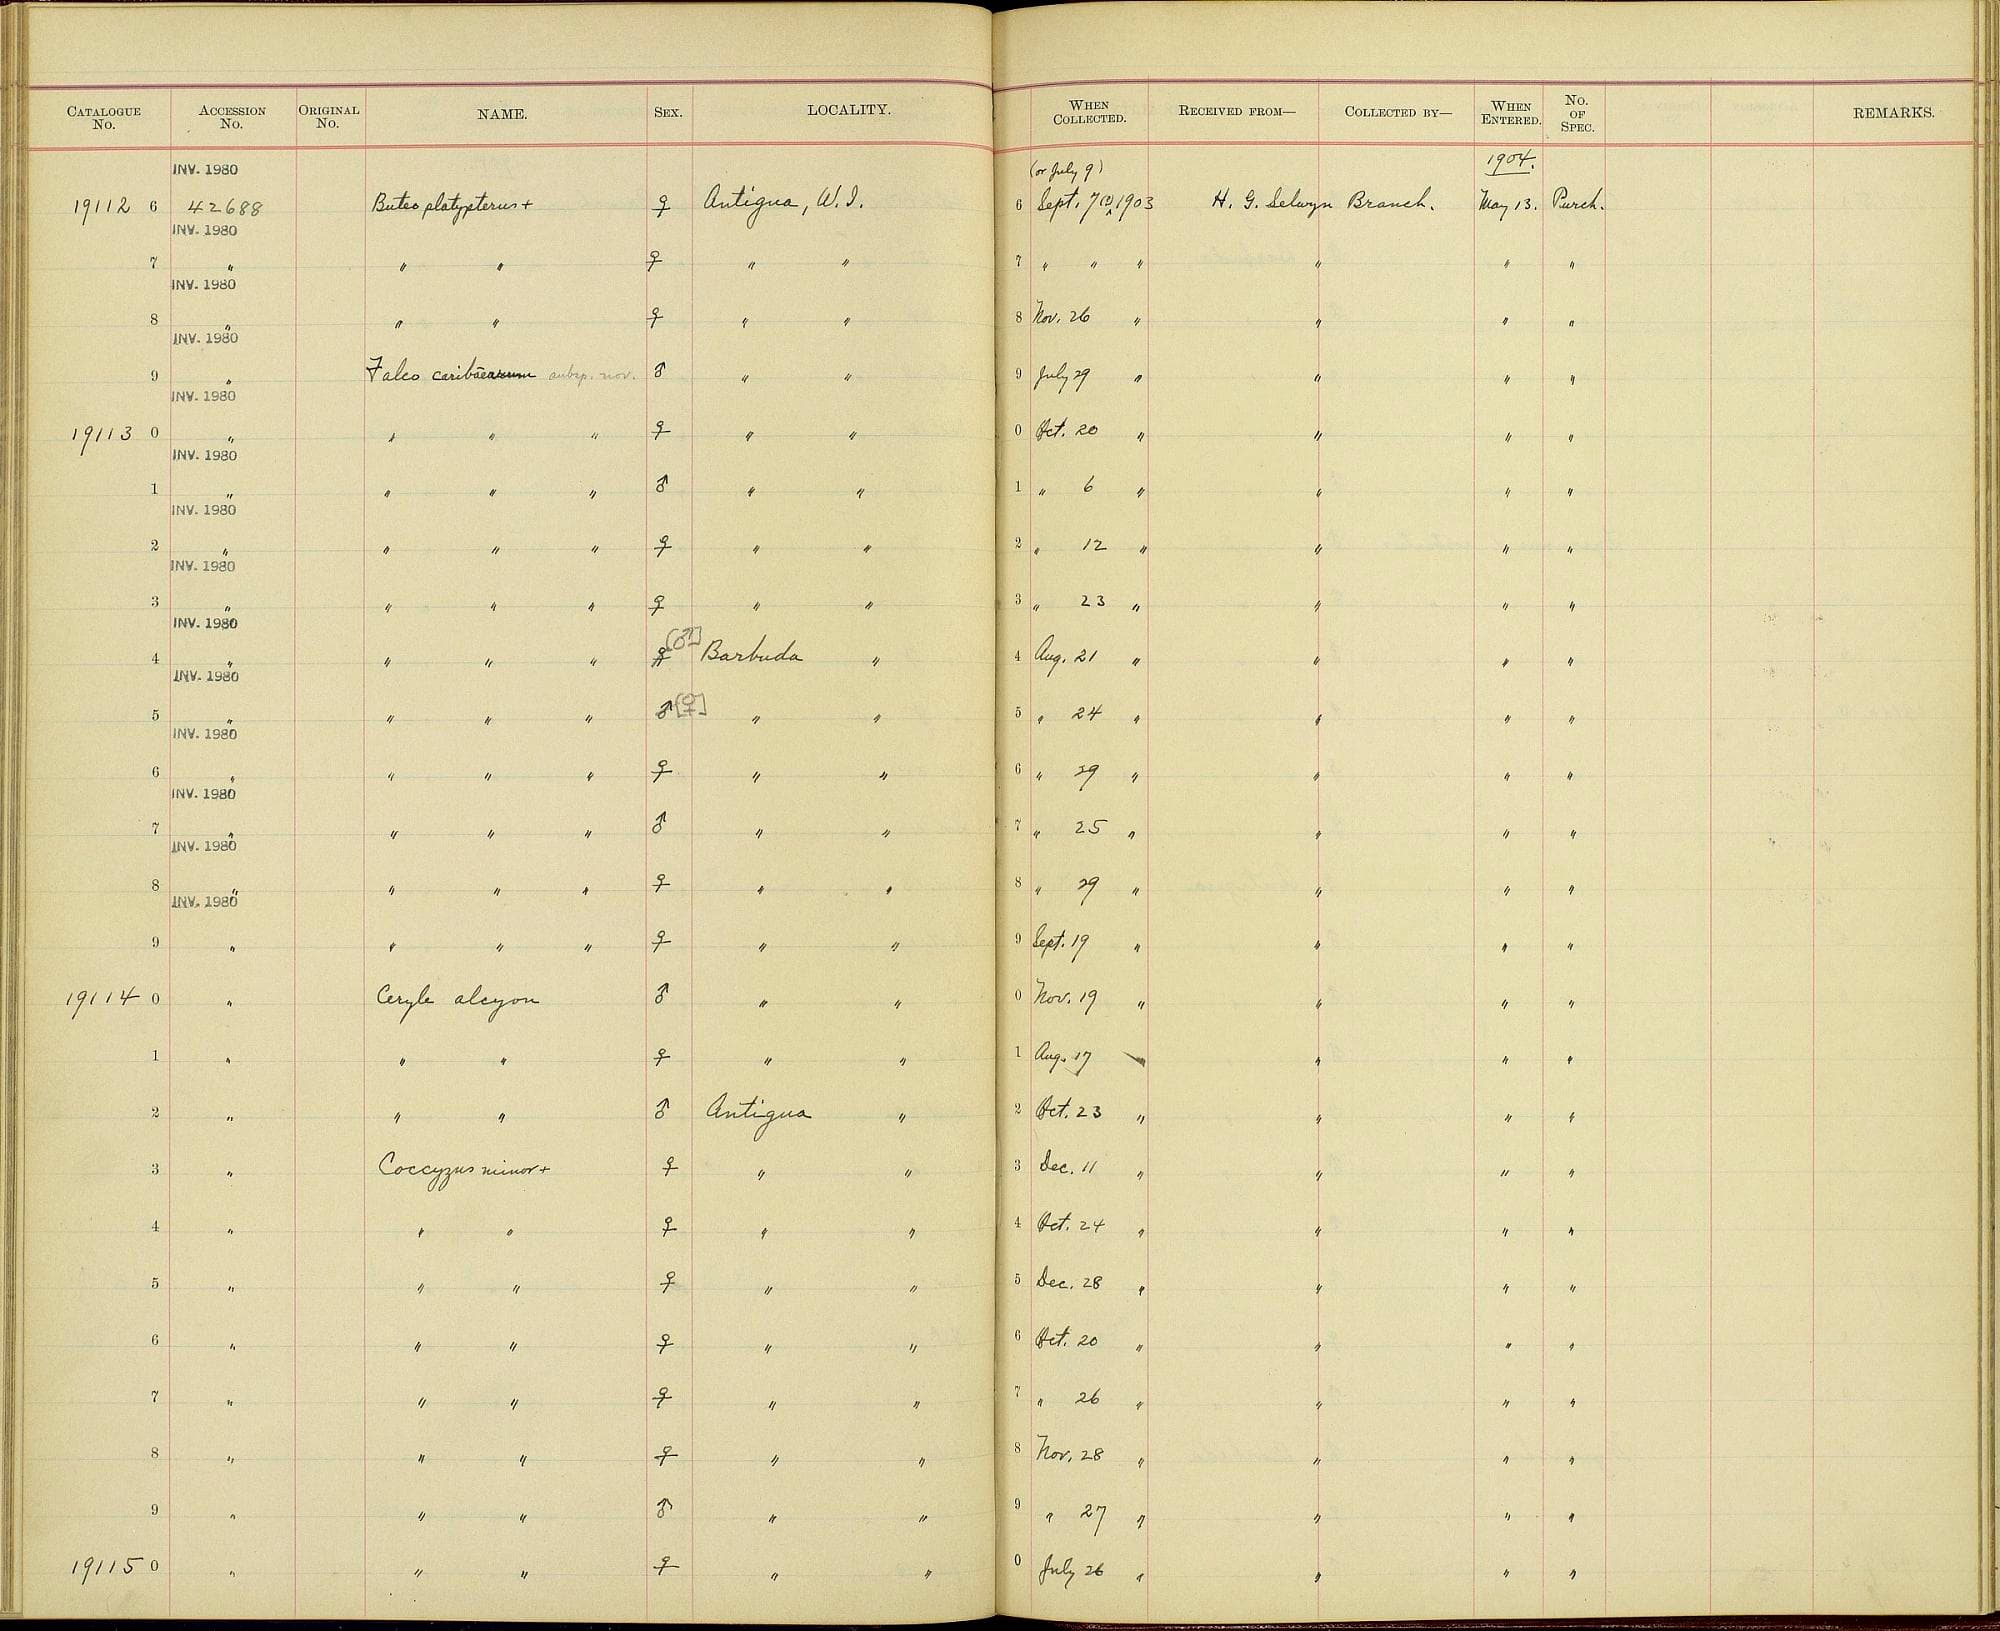 CATALOGUE No. ACCESSION No. ORIGINAL No. NAME. SEX. LOCALITY. WHEN COLLECTED. RECEIVED FROM— COLLECTED BY— WHEN ENTERED. No. OF SPEC. REMARKS.
INV. 1980 (or July 9) 1904.
19112 6 42688 Buteo platypterus + ♀ Antigua, W.I. 6 Sept. 7(?) 1903 H. G. Selwyn Branch. May 13. Purch.
INV. 1980
7 " " " ♀ " " 7 " " " " " "
INV. 1980
8 " " " ♀ " " 8 Nov. 26 " " " "
INV. 1980
9 " Falco caribaearum subsp. nov. ♂ " " 9 July 29 " " " "
INV. 1980
19113 0 " " " " ♀ " " 0 Oct. 20 " " " "
INV. 1980
1 " " " " ♂ " " 1 " 6 " " " "
INV. 1980
2 " " " " ♀ " " 2 " 12 " " " "
INV. 1980
3 " " " " ♀ " " 3 " 23 " " " "
INV. 1980
4 " " " " ♀ [♂] Barbuda " 4 Aug. 21 " " " "
INV. 1980
5 " " " " ♂ [♀] " " 5 " 24 " " " "
INV. 1980
6 " " " " ♀ " " 6 " 29 " " " "
INV. 1980
7 " " " " ♂ " " 7 " 25 " " " "
INV. 1980
8 " " " " ♀ " " 8 " 29 " " " "
INV. 1980
9 " " " " ♀ " " 9 Sept. 19 " " " "
19114 0 " Ceryle alcyon ♂ " " 0 Nov. 19 " " " "
1 " " " ♀ " " 1 Aug. 17 " " " "
2 " " " ♂ Antigua " 2 Oct. 23 " " " "
3 " Coccyzus minor + ♀ " " 3 Dec. 11 " " " "
4 " " " ♀ " " 4 Oct. 24 " " " "
5 " " " ♀ " " 5 Dec. 28 " " " "
6 " " " ♀ " " 6 Oct. 20 " " " "
7 " " " ♀ " " 7 " 26 " " " "
8 " " " ♀ " " 8 Nov. 28 " " " "
9 " " " ♂ " " 9 " 27 " " " "
19115 0 " " " ♀ " " 0 July 26 " " " "